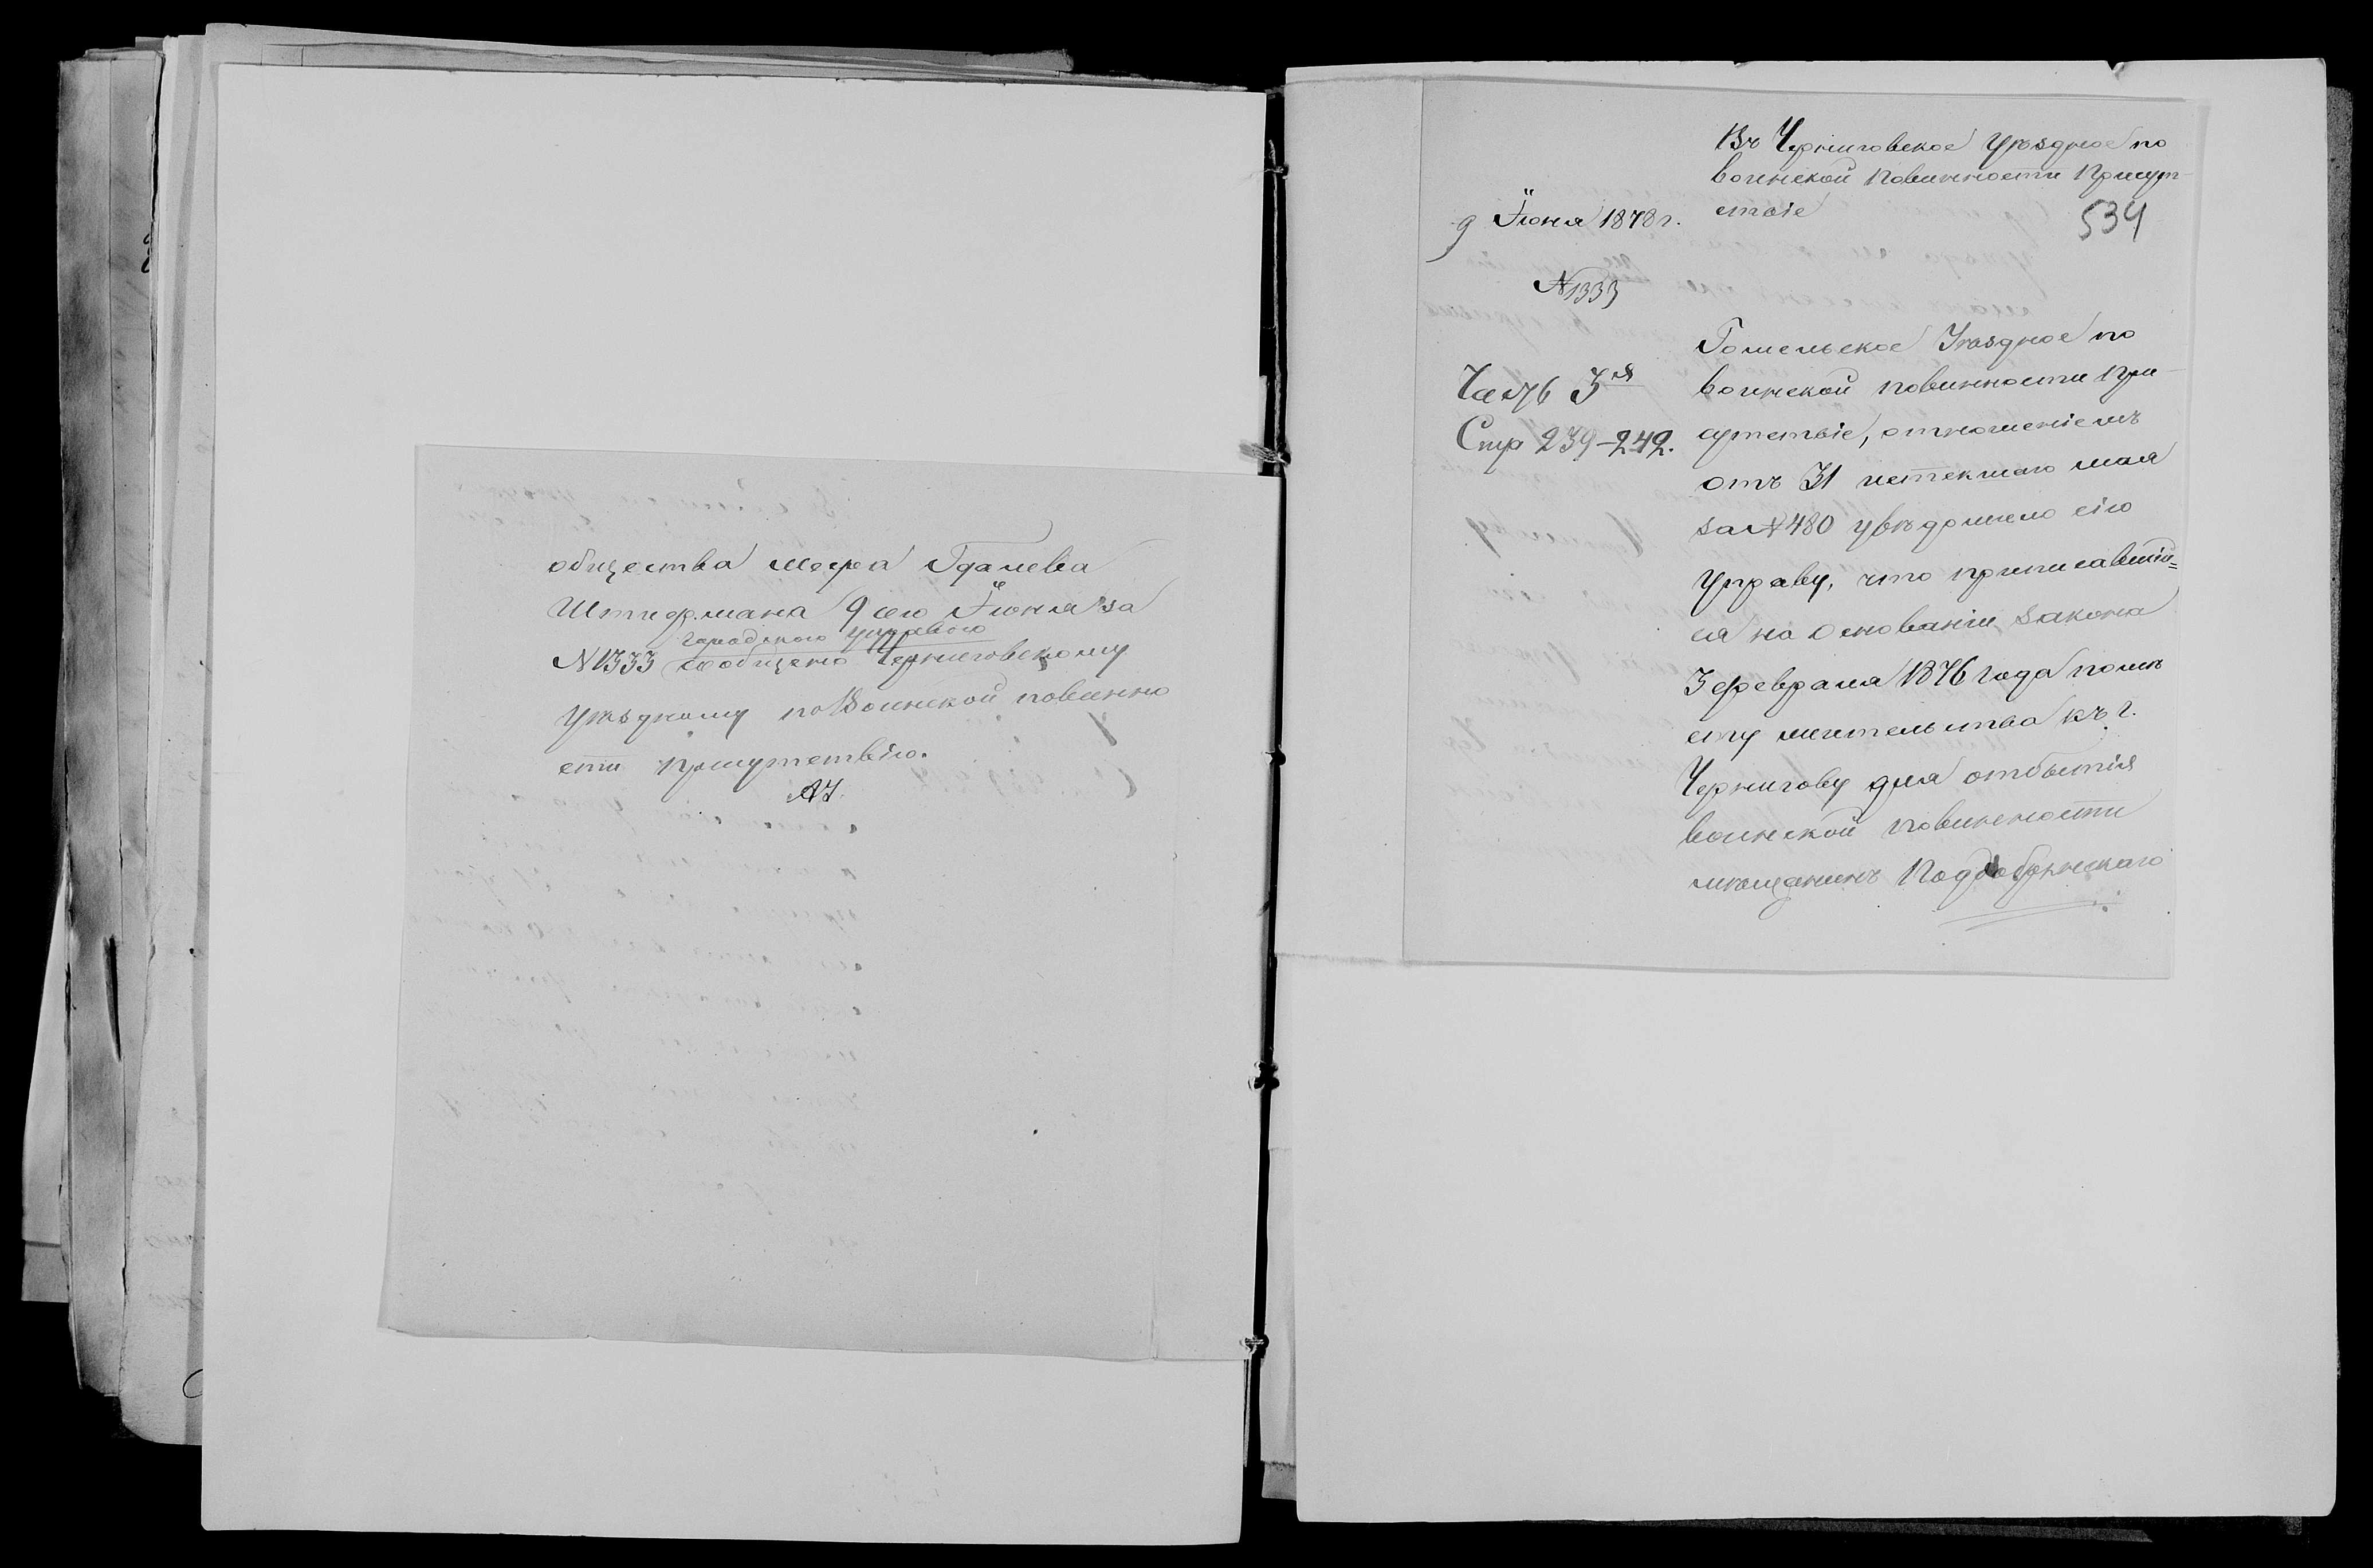 общества Меера Гдалева
Штифмана 9 сего Іюня за
городскою управою
N 1333 сообщено Черниговскому
Уѣздному по Воинской повинно
сти присутствію.
9 Іюня 1878 г.
N 1333
Часть 3я
Стр 239-242.
Въ Черниговское Уѣздное по
воинской повинности Присут-
ствіе
534
Гомельское Уѣздное по
воинской повинности При-
сутствіе, отношеніемъ
отъ 31 истекшаго мая
за N 480 увѣдомило сію
Управу, что приписавшій=
ся на основаніи закона
3 февраля 1876 года по мѣ
сту жительства къ г.
Чернигову для отбытія
воинской повинности
мѣщанинъ Поддобрянскаго